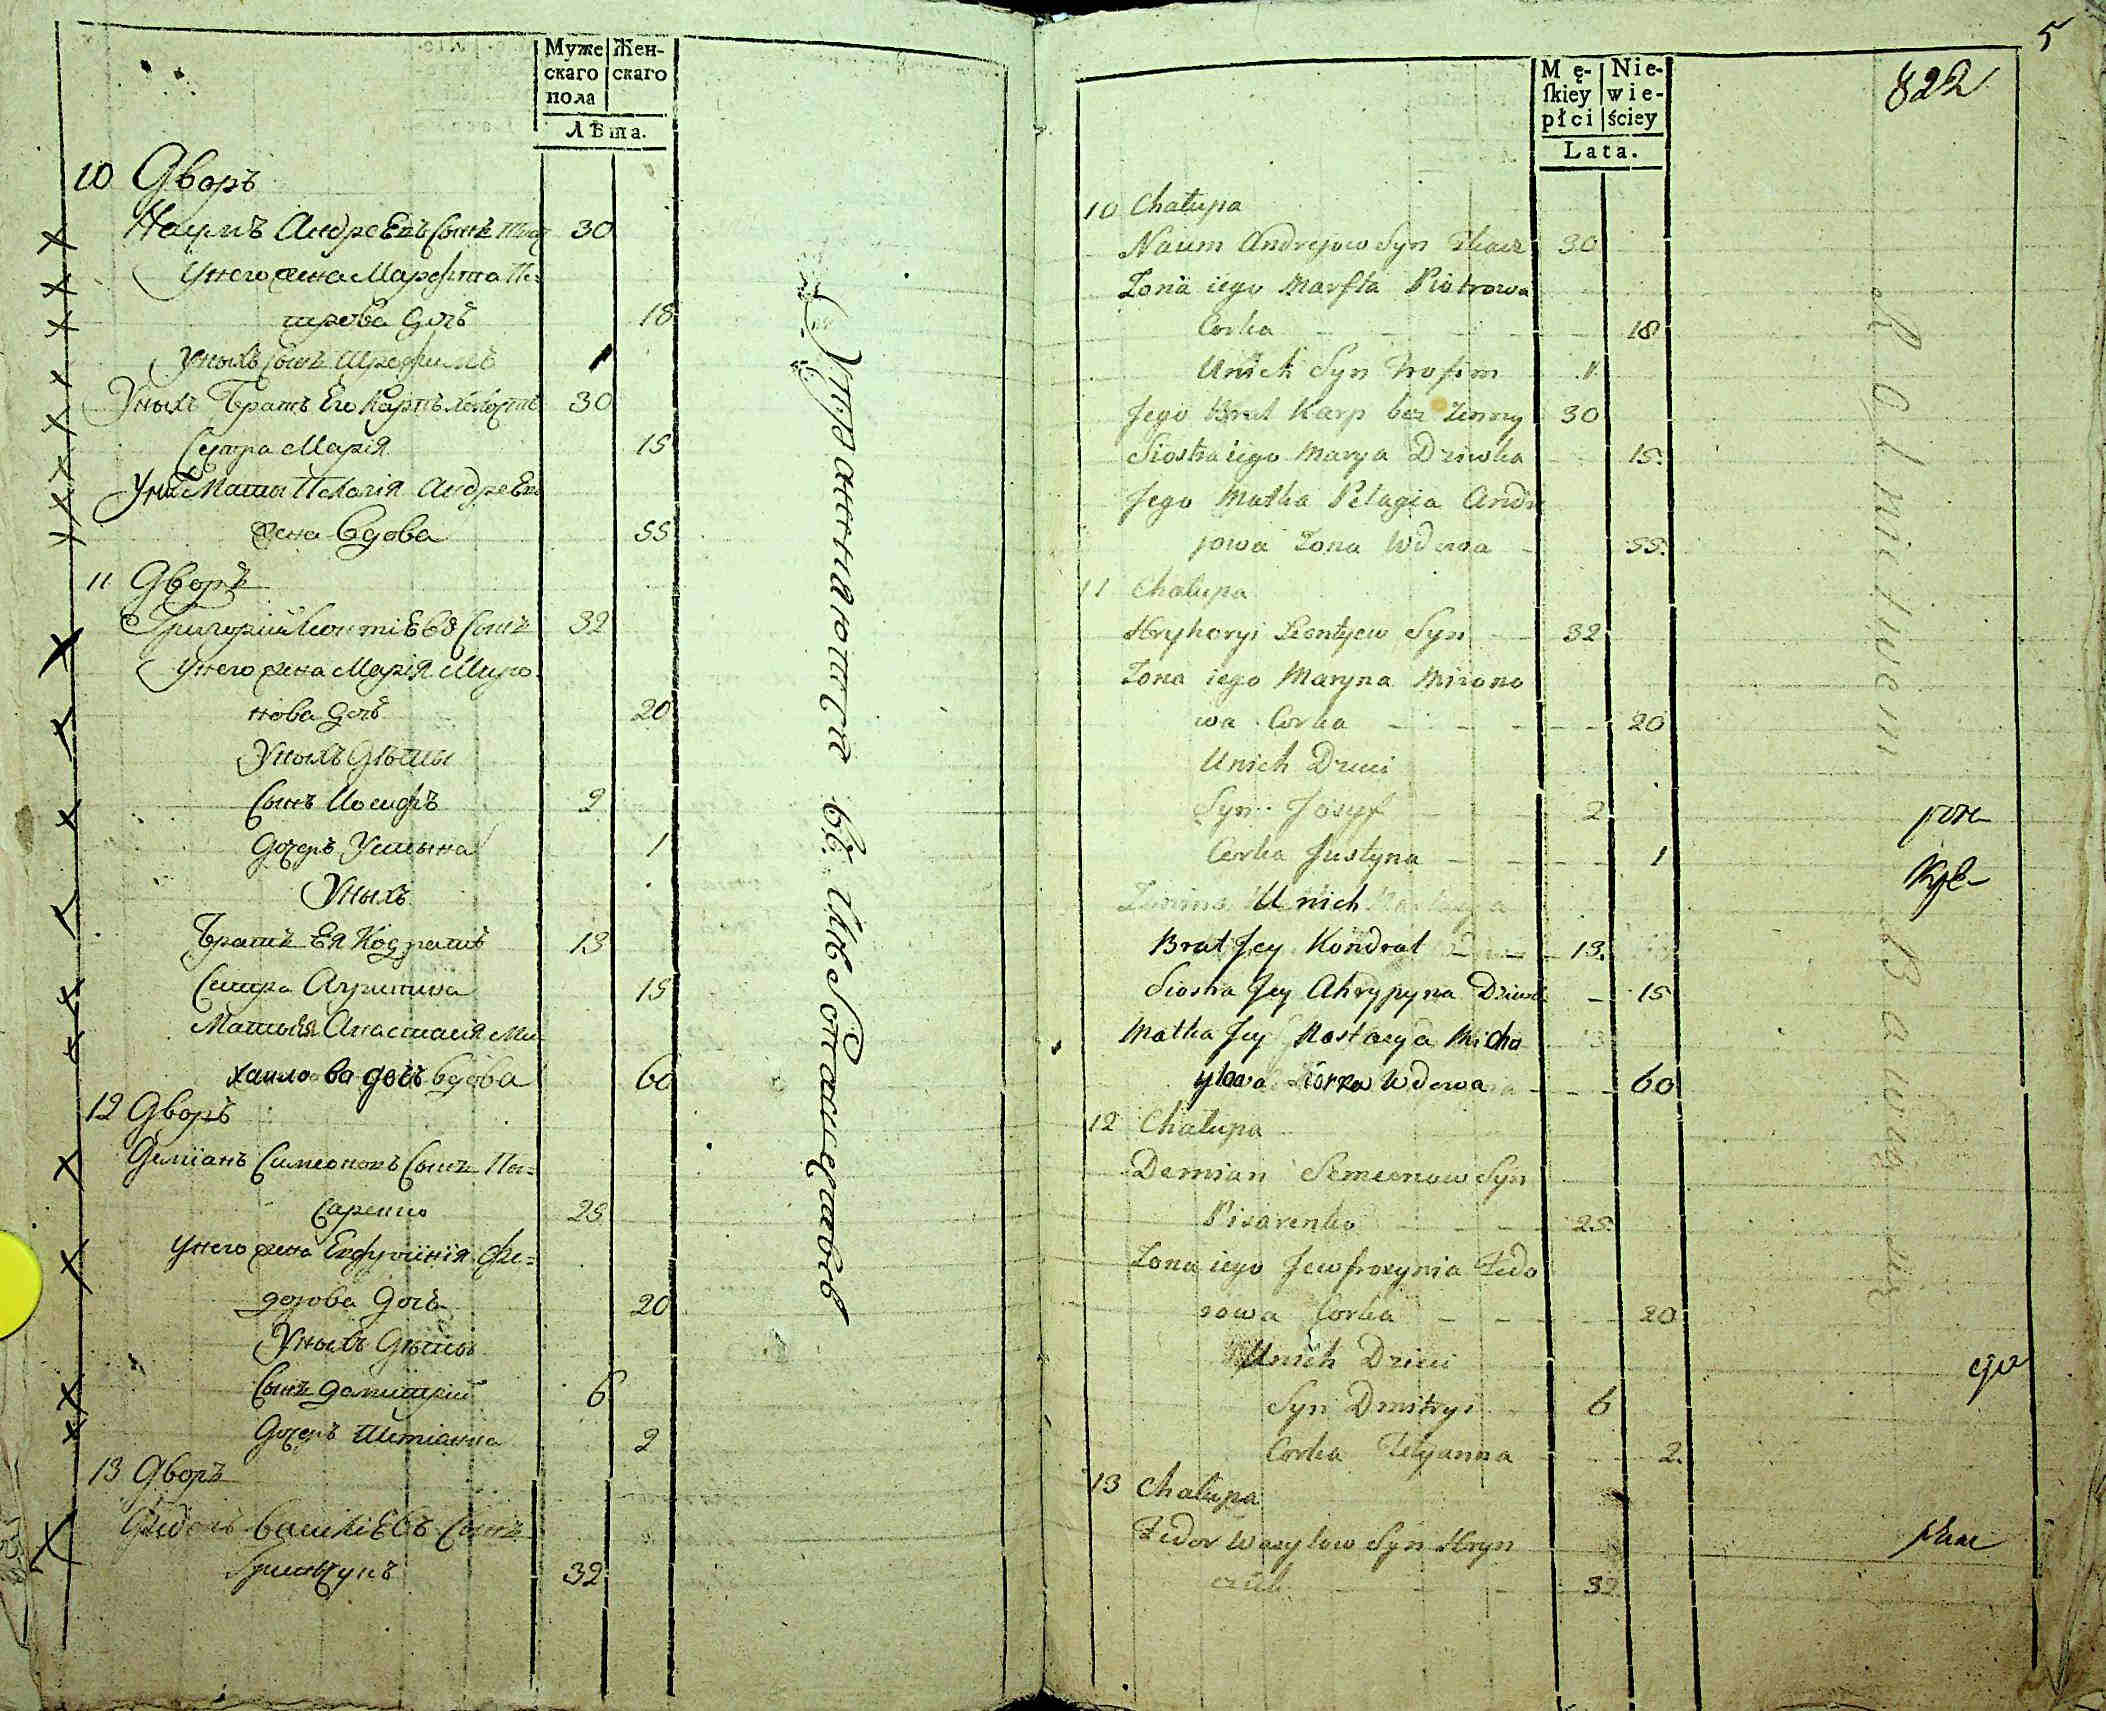 Муже
скаго
пола
Жен-
скаго
Лѣта.
10 Дворъ
Наумъ Андреевъ Сынъ 30
Унего жена Марфта Пе=
трова дочь 18
Уныхъ сынъ Трофимъ 1
Уныхъ Братъ Его Карпъ холостъ 30
Сестра Марія 15
Мать Пелагія Андреева
жена вдова 55
11 Дворъ
Григорій Леонтіевъ Сынъ 32
Унего жена Марія Миро
нова дочь 20
Уныхъ Дѣты
Сынъ Иосифъ 2
Дочерь Устына 1
Уныхъ
Братъ Ея Кодратъ 13
Сестра Агрипина 15
Мать Ея Анастасія Ми
хаилова дочь вдова 60
12 Дворъ
Деміанъ Симеоновъ Сынъ Пи=
саренко 25
Унего жена Евфросинія Фе=
дорова Дочь 20
Уныхъ Дѣты
Сынъ Димитрій 6
Дочерь Тетіанна 2
13 Дворъ
Василіевъ Сынъ
Гринчукъ 32
въ
5
822
Mę-
ſkiey
płci
Nie-
wie-
ściey
Lata.
10 Chałupa
Naum Andrejow Syn Tkacz 30
Zona iego Marfta Piotrowa
Corka 18
Unich Syn Trofim 1
Jego Brat Karp bez Zenny 30
Siostra iego Marya Dziewka 15.
Jego Matka Pelagia Andre
jowa Zona Wdowa 55.
11 Chalupa
Hryhoryi Leontjew Syn 32
Zona iego Maryna Mirono
wa Corka 20
Unich Dzieci
Syn Josyf 2
Corka Justyna 1
Unich
Brat Jey Kondrat 13.
Siostra Jey Ahrypyna Dziewka 15
Matka Jey Nastasya Micha
yłowa Corka Wdowa 60
12 Chalupa
Demian Semeonow Syn
Pisarenko 25.
Zona iego Jewfrozynia Fedo
rowa Corka 20
Unich Dzieci
Syn Dmitryi 6
Corka Tetyanna 2.
13 Chalupa
Fedor Wasylow Syn Hryn
czuk 32